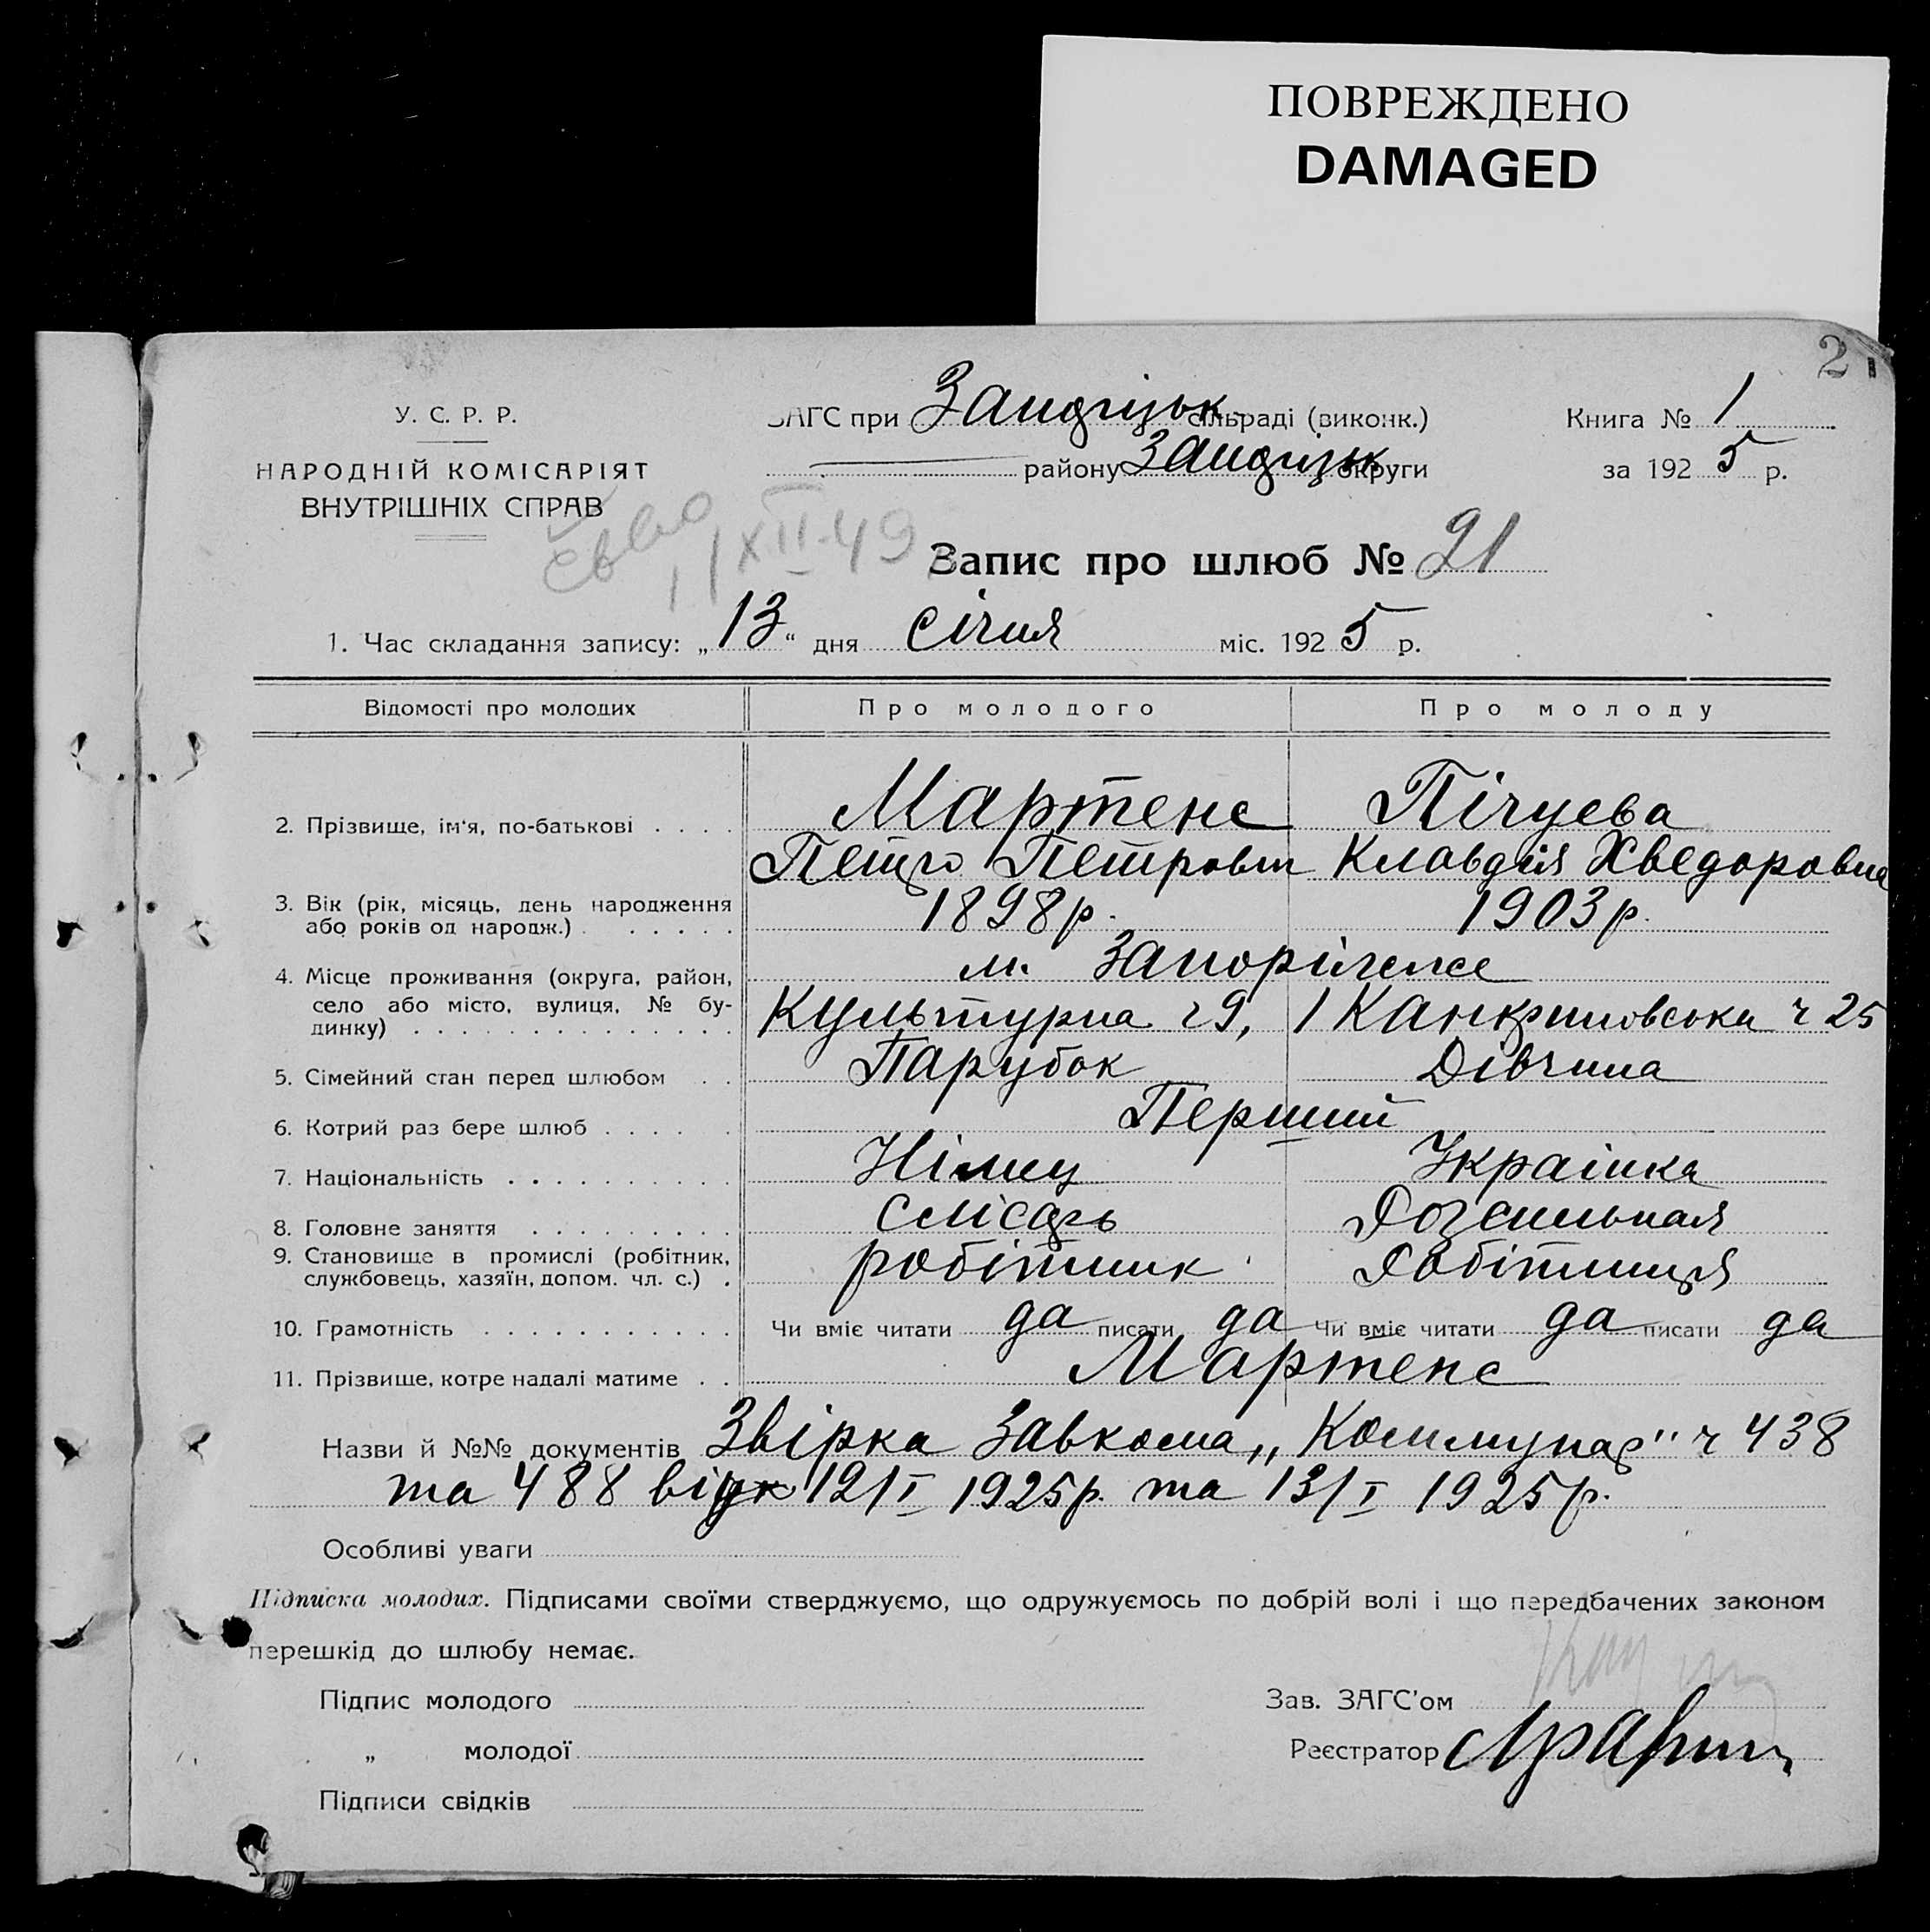 ПОВРЕЖДЕНО
DAMAGED
2
У. С. Р. Р.
НАРОДНІЙ КОМІСАРІЯТ
ВНУТРІШНІХ СПРАВ
ЗАГС при сільраді (виконк.)
району округи
Книга № 1
за 1925 р.
XII-49
Запис про шлюб № 21
1. Час складання запису: „13“ дня січня міс. 1925 р.
Відомості про молодих Про молодого Про молоду
2. Прізвище, ім'я, по-батькові . . . . Мартенс Пічуєва
Петро Петрович Клавдія Хведоровна
3. Вік (рік, місяць, день народження 1898р. 1903р.
або років од народж.) . . . . . .
4. Місце проживання (округа, район, м. Запоріжжє
село або місто, вулиця, № бу-
динку) . . . . . . . . . . . . . . Культурна ч 9, / Канкриновська ч 25
5. Сімейний стан перед шлюбом . . Парубок Дівчина
6. Котрий раз бере шлюб . . . . . . Перший
7. Національність . . . . . . . . . . Німец Українка
8. Головне заняття . . . . . . . . . Слісарь
9. Становище в промислі (робітник,
службовець, хазяїн, допом. чл. с.) . робітник Робітниця
10. Грамотність . . . . . . . . . . . Чи вміє читати да писати да Чи вміє читати да писати да
11. Прізвище, котре надалі матиме . . Мартенс
Назви й №№ документів Звірка Завкома „Коммунар" ч 438
та 488 від 12/I 1925р. та 13/I 1925р.
Особливі уваги
Підписка молодих. Підписами своїми стверджуємо, що одружуємось по добрій волі і що передбачених законом
перешкід до шлюбу немає.
Підпис молодого Зав. ЗАГС'ом
„ молодої Реєстратор
Підписи свідків